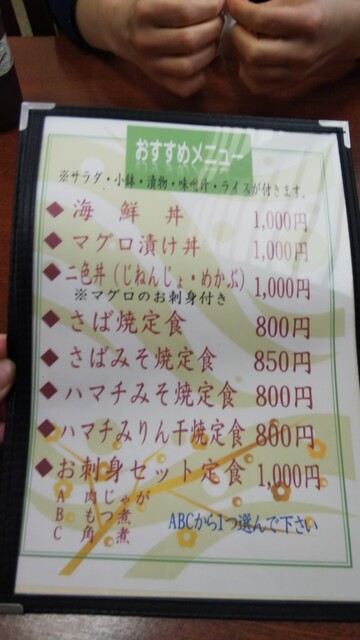 おすすめメニュー
※サラダ・小鉢・漬物・味噌汁・ライスが付きます。
◆海鮮丼 1,000円
◆マグロ漬け丼 1,000円
◆二色丼(じねんじょ・めかぶ) 1,000円
※マグロのお刺身付き
◆さば焼定食 800円
◆さばみそ焼定食 850円
◆ハマチみそ焼定食 800円
◆ハマチみりん干焼定食 800円
◆お刺身セット定食 1,000円
A 肉じゃが
B もつ煮
C 角煮
ABCから1つ選んで下さい